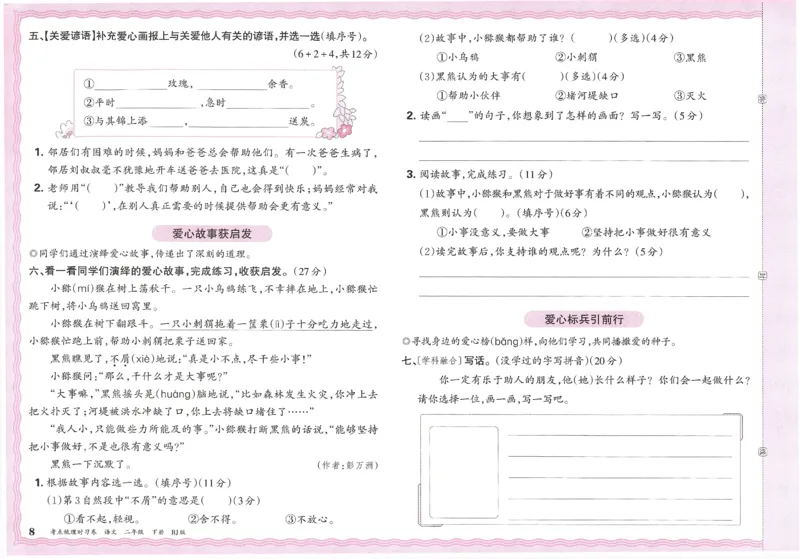 五、【关爱谚语】补充爱心画报上与关爱他人有关的谚语,并选一选(填序号)。
(6+2+4,共12分)
①____________玫瑰,____________余香。
②平时____________,急时____________。
③与其锦上添______,________________送炭。
1. 邻居们有困难的时候,妈妈和爸爸总会帮助他们。有一次爸爸生病了,
邻居刘叔叔毫不犹豫地开车送爸爸去医院,这真是“(　　)”。
2. 老师用“(　　)”教导我们帮助别人,自己也会得到快乐;妈妈经常对我
说:“‘(　　)’,在别人真正需要的时候提供帮助会更有意义。”
爱心故事获启发
◎同学们通过演绎爱心故事,传递出了深刻的道理。
六、看一看同学们演绎的爱心故事,完成练习,收获启发。(27分)
小猕(mí)猴在树上荡秋千。一只小乌鸦练飞,不幸摔在地上,小猕猴忙
跳下树,将小乌鸦送回窝里。
小猕猴在树下翻跟斗。一只小刺猬拖着一筐栗(lì)子十分吃力地走过,
小猕猴忙跑上前,帮助小刺猬把栗子送回家。
黑熊瞧见了,不屑(xiè)地说:“真是小不点,尽干些小事!”
小猕猴问:“那么,干什么才是大事呢?”
“大事嘛,”黑熊摇头晃(huàng)脑地说,“比如森林发生火灾,你冲上去
把火扑灭了;河堤被洪水冲缺了口,你上去将缺口堵住了……”
“我人小,只能做些力所能及的事。”小猕猴打断黑熊的话说,“能够坚持
把小事做好,不是也很有意义吗?”
黑熊一下沉默了。	(作者:彭万洲)
1. 根据故事内容选一选。(填序号)(11分)
(1)第3自然段中“不屑”的意思是(　　)(3分)
①看不起,轻视。　②舍不得。　③不放心。
8　考点梳理时习卷　语文　二年级　下册　RJ版
(2)故事中,小猕猴都帮助了谁?(　　)(多选)(4分)
①小乌鸦　②小刺猬　③黑熊
(3)黑熊认为的大事有(　　)(多选)(4分)
①帮助小伙伴　②堵河堤缺口　③灭火
2. 读画“____”的句子,你想象到了怎样的画面?写一写。(5分)
3. 阅读故事,完成练习。(11分)
(1)故事中,小猕猴和黑熊对于做好事有着不同的观点,小猕猴认为(　　),
黑熊则认为(　　)。(填序号)(6分)
①小事没意义,要做大事　②坚持把小事做好很有意义
(2)读完故事后,你支持谁的观点呢?为什么?(5分)
爱心标兵引前行
◎寻找身边的爱心榜(bǎng)样,向他们学习,共同播撒爱的种子。
七、[学科融合]写话。(没学过的字写拼音)(20分)
你一定有乐于助人的朋友,他(她)长什么样子?你们会一起做什么?
请你选择一位,画一画,写一写吧。